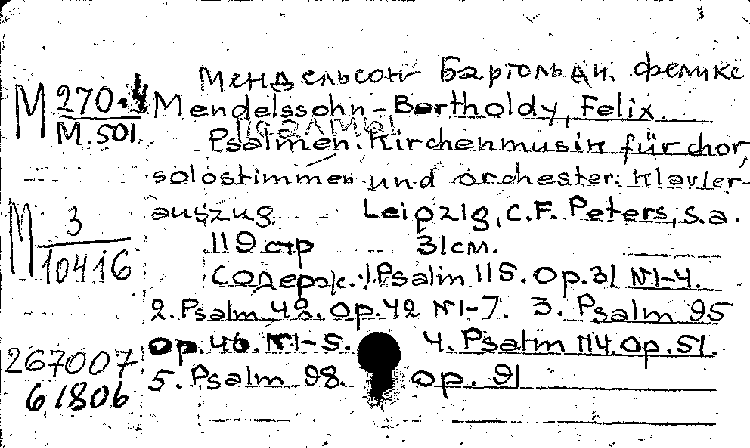 Мендельсон Бартольди, Феликс
М 270.4 Mendelssohn-Bartholdy, Felix
М.501 Psalmen. Kirchenmusik für chor,
solostimmen und orchester. Klavier-
auszug Leipzig, C.F. Peters, s.a.
М 3 119 стр 31см.
10416 Содерж. 1. Psalm 115. Op.31 №1-4.
2. Psalm 42. Op.42 №1-7. 3. Psalm 95
Op.46. №1-5. 4. Psalm 114. Op.51.
267007 5. Psalm 98. Op. 91
61806